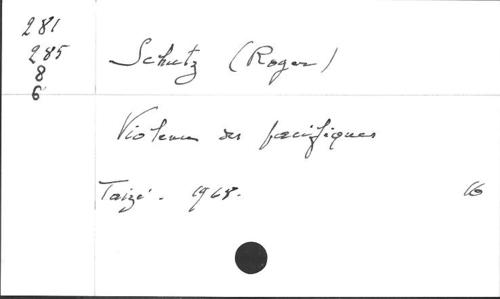 281
285
8
6
Schutz (Roger)
Violence des pacifiques
Taizé. 1968.
16